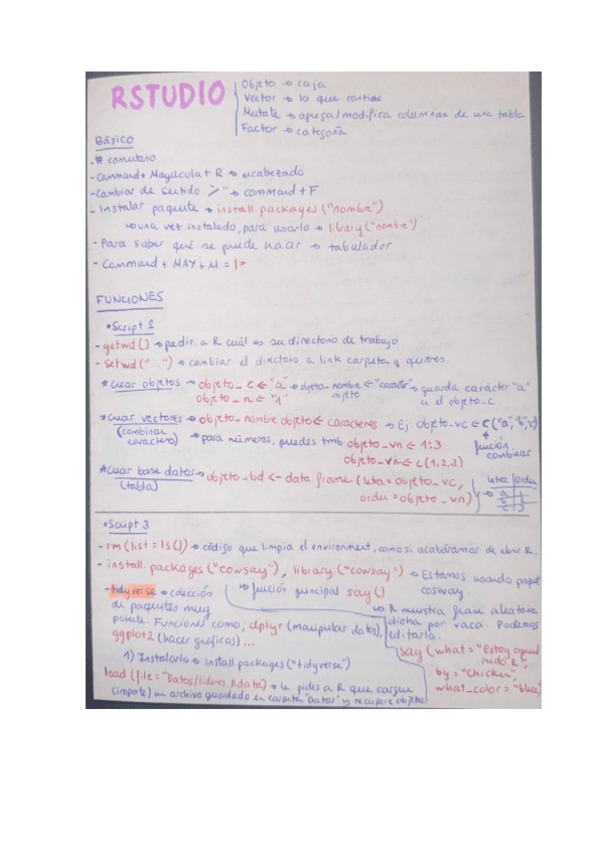 RSTUDIO
Objeto → caja
Vector → lo que contiene
Mutate → agrega/modifica columnas de una tabla
Factor → categoría
Básico
- # comentario
- Command + Mayúscula + R → encabezado
- Cambiar de sentido → command + F
- Instalar paquete → install.packages ("nombre")
→ una vez instalado, para usarlo → library ("nombre")
- Para saber qué se puede hacer → tabulador
- Command + MAY + M = |>
FUNCIONES
• Script 2
- getwd () → pedir a R cuál es su directorio de trabajo
- setwd ("...") → cambiar el directorio a link carpeta q quieres.
* Crear objetos → objeto_c <- "a" → objeto_nombre objeto <- "carácter" → guarda carácter "a"
objeto_n <- "1" en el objeto_c.
* Crear vectores → objeto_nombre objeto <- caracteres → Ej: objeto_vc <- c("a","b","c")
(combinar caracteres) → para números, puedes tmb objeto_vn <- 1:3
objeto_vn <- c(1,2,3)
función combinar
* Crear base datos → objeto_bd <- data.frame (letra = objeto_vc,
(tabla) orden = objeto_vn)
letra orden
a 1
b 2
c 3
• Script 3
- rm (list = ls()) → código que limpia el environment, como si acabáramos de abrir R.
- install.packages ("cowsay"), library ("cowsay") → Estamos usando paquet
cosway.
→ función principal say()
→ R muestra frase aleatoria
dicha por vaca. Podemos
editarla.
say (what = "Estoy aprend
iendo R",
by = "Chicken",
what_color = "blue"
- tidyverse → colección
de paquetes muy
potente. Funciones como; dplyr (manipular datos),
ggplot2 (hacer gráficos)...
1) Instalarlo → install.packages ("tidyverse")
load (file = "Datos/lideres.Rdata) → le pides a R que cargue
(importe) un archivo guardado en carpeta "Datos" y recupere objetos